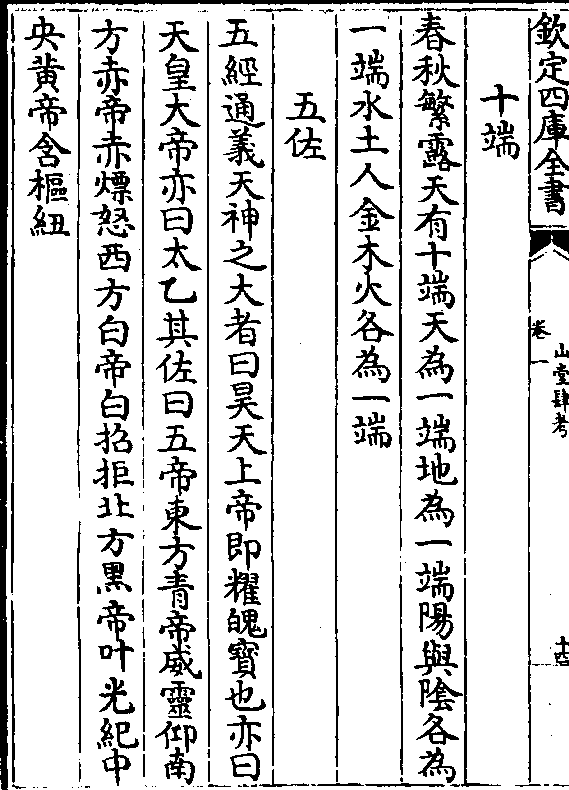 欽定四庫全書
卷一
山堂肆考
十四
十端
春秋繁露天有十端天為一端地為一端陽與陰各為
一端水土人金木火各為一端
五佐
五經通義天神之大者曰昊天上帝即耀魄寶也亦曰
天皇大帝亦曰太乙其佐曰五帝東方青帝威靈仰南
方赤帝赤熛怒西方白帝白招拒北方黑帝叶光紀中
央黄帝含樞紐